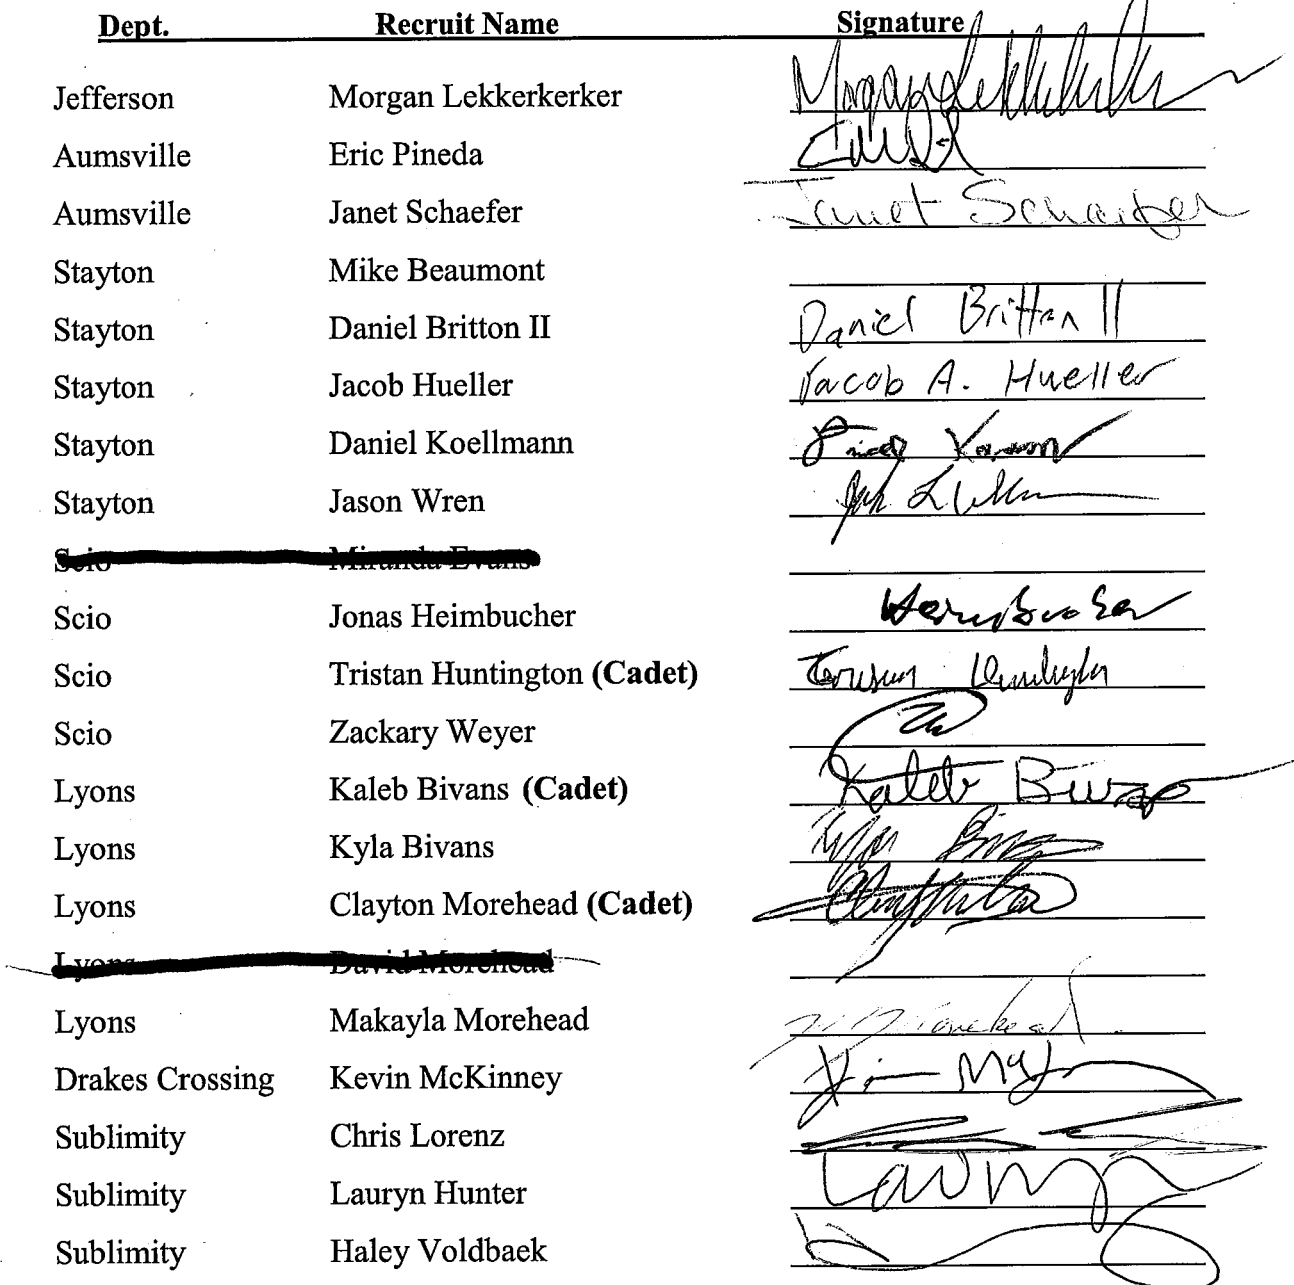 Dept. Recruit Name Signature
Jefferson Morgan Lekkerkerker Morgan Lekkerkerker
Aumsville Eric Pineda
Aumsville Janet Schaefer Janet Schaefer
Stayton Mike Beaumont
Stayton Daniel Britton II Daniel Britton II
Stayton Jacob Hueller Jacob A. Hueller
Stayton Daniel Koellmann
Stayton Jason Wren
Scio Miranda Evans
Scio Jonas Heimbucher
Scio Tristan Huntington (Cadet)
Scio Zackary Weyer
Lyons Kaleb Bivans (Cadet) Kaleb
Lyons Kyla Bivans
Lyons Clayton Morehead (Cadet)
Lyons David Morehead
Lyons Makayla Morehead
Drakes Crossing Kevin McKinney
Sublimity Chris Lorenz
Sublimity Lauryn Hunter
Sublimity Haley Voldbaek